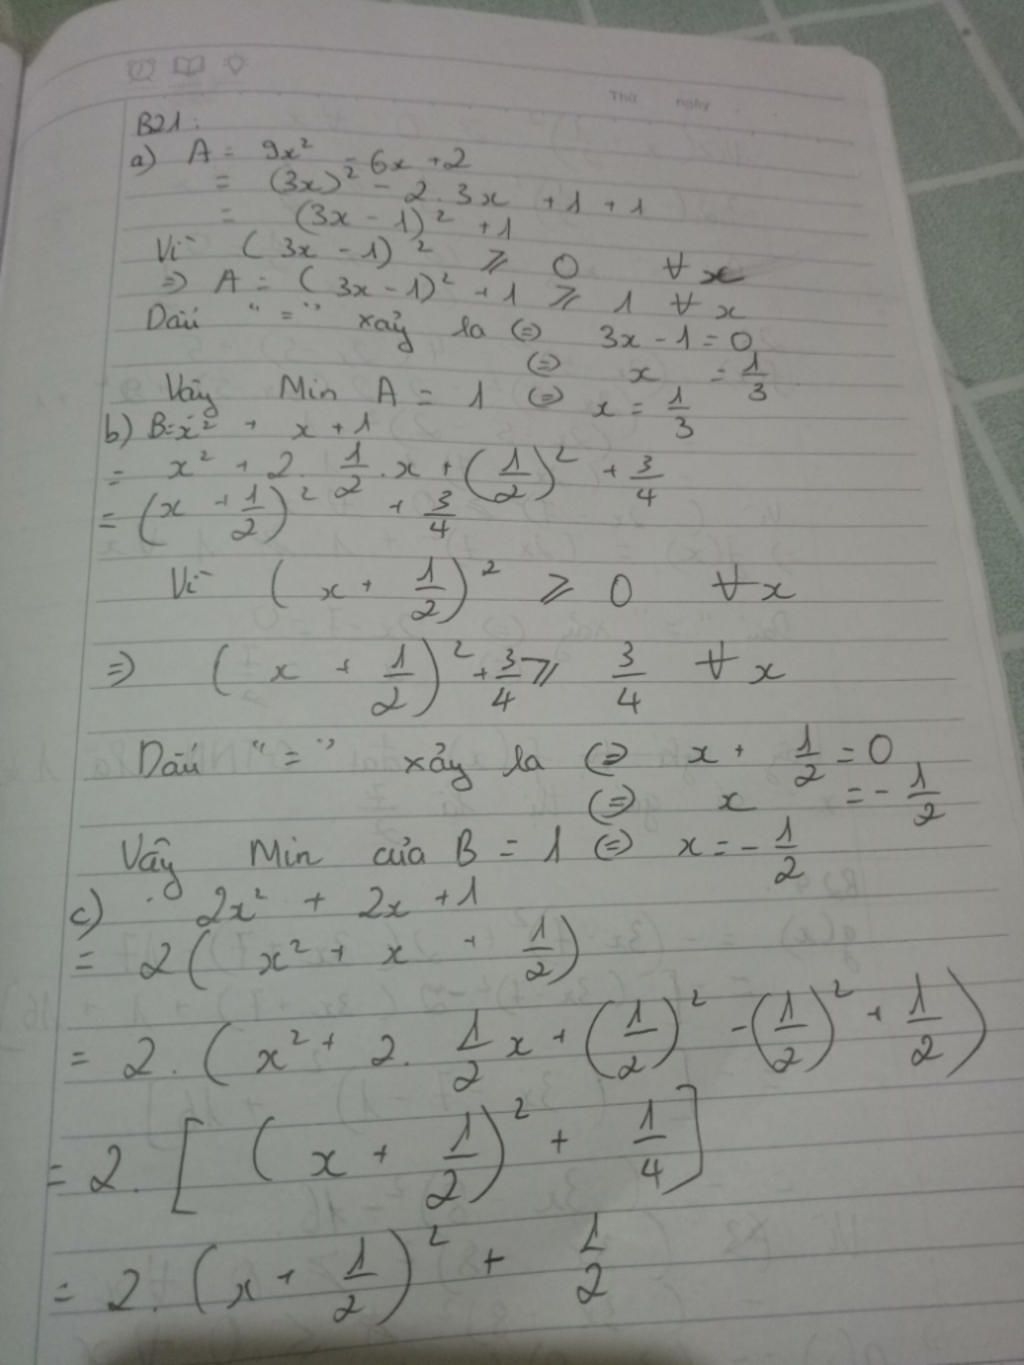 Thứ ngày
B21:
a) A = 9x² - 6x + 2
= (3x)² - 2.3x + 1 + 1
= (3x - 1)² + 1
Vì (3x - 1)² ⩾ 0 ∀x
⇒ A = (3x - 1)² + 1 ⩾ 1 ∀x
Dấu "=" xảy la ⇔ 3x - 1 = 0
⇔ x = 1/3
Vậy Min A = 1 ⇔ x = 1/3
b) B = x² + x + 1
= x² + 2. 1/2 .x + (1/2)² + 3/4
= (x + 1/2)² + 3/4
Vì (x + 1/2)² ⩾ 0 ∀x
⇒ (x + 1/2)² + 3/4 ⩾ 3/4 ∀x
Dấu "=" xảy la ⇔ x + 1/2 = 0
⇔ x = -1/2
Vậy Min của B = 1 ⇔ x = -1/2
c) 2x² + 2x + 1
= 2(x² + x + 1/2)
= 2.(x² + 2. 1/2x + (1/2)² - (1/2)² + 1/2)
= 2.[(x + 1/2)² + 1/4]
= 2.(x + 1/2)² + 1/2